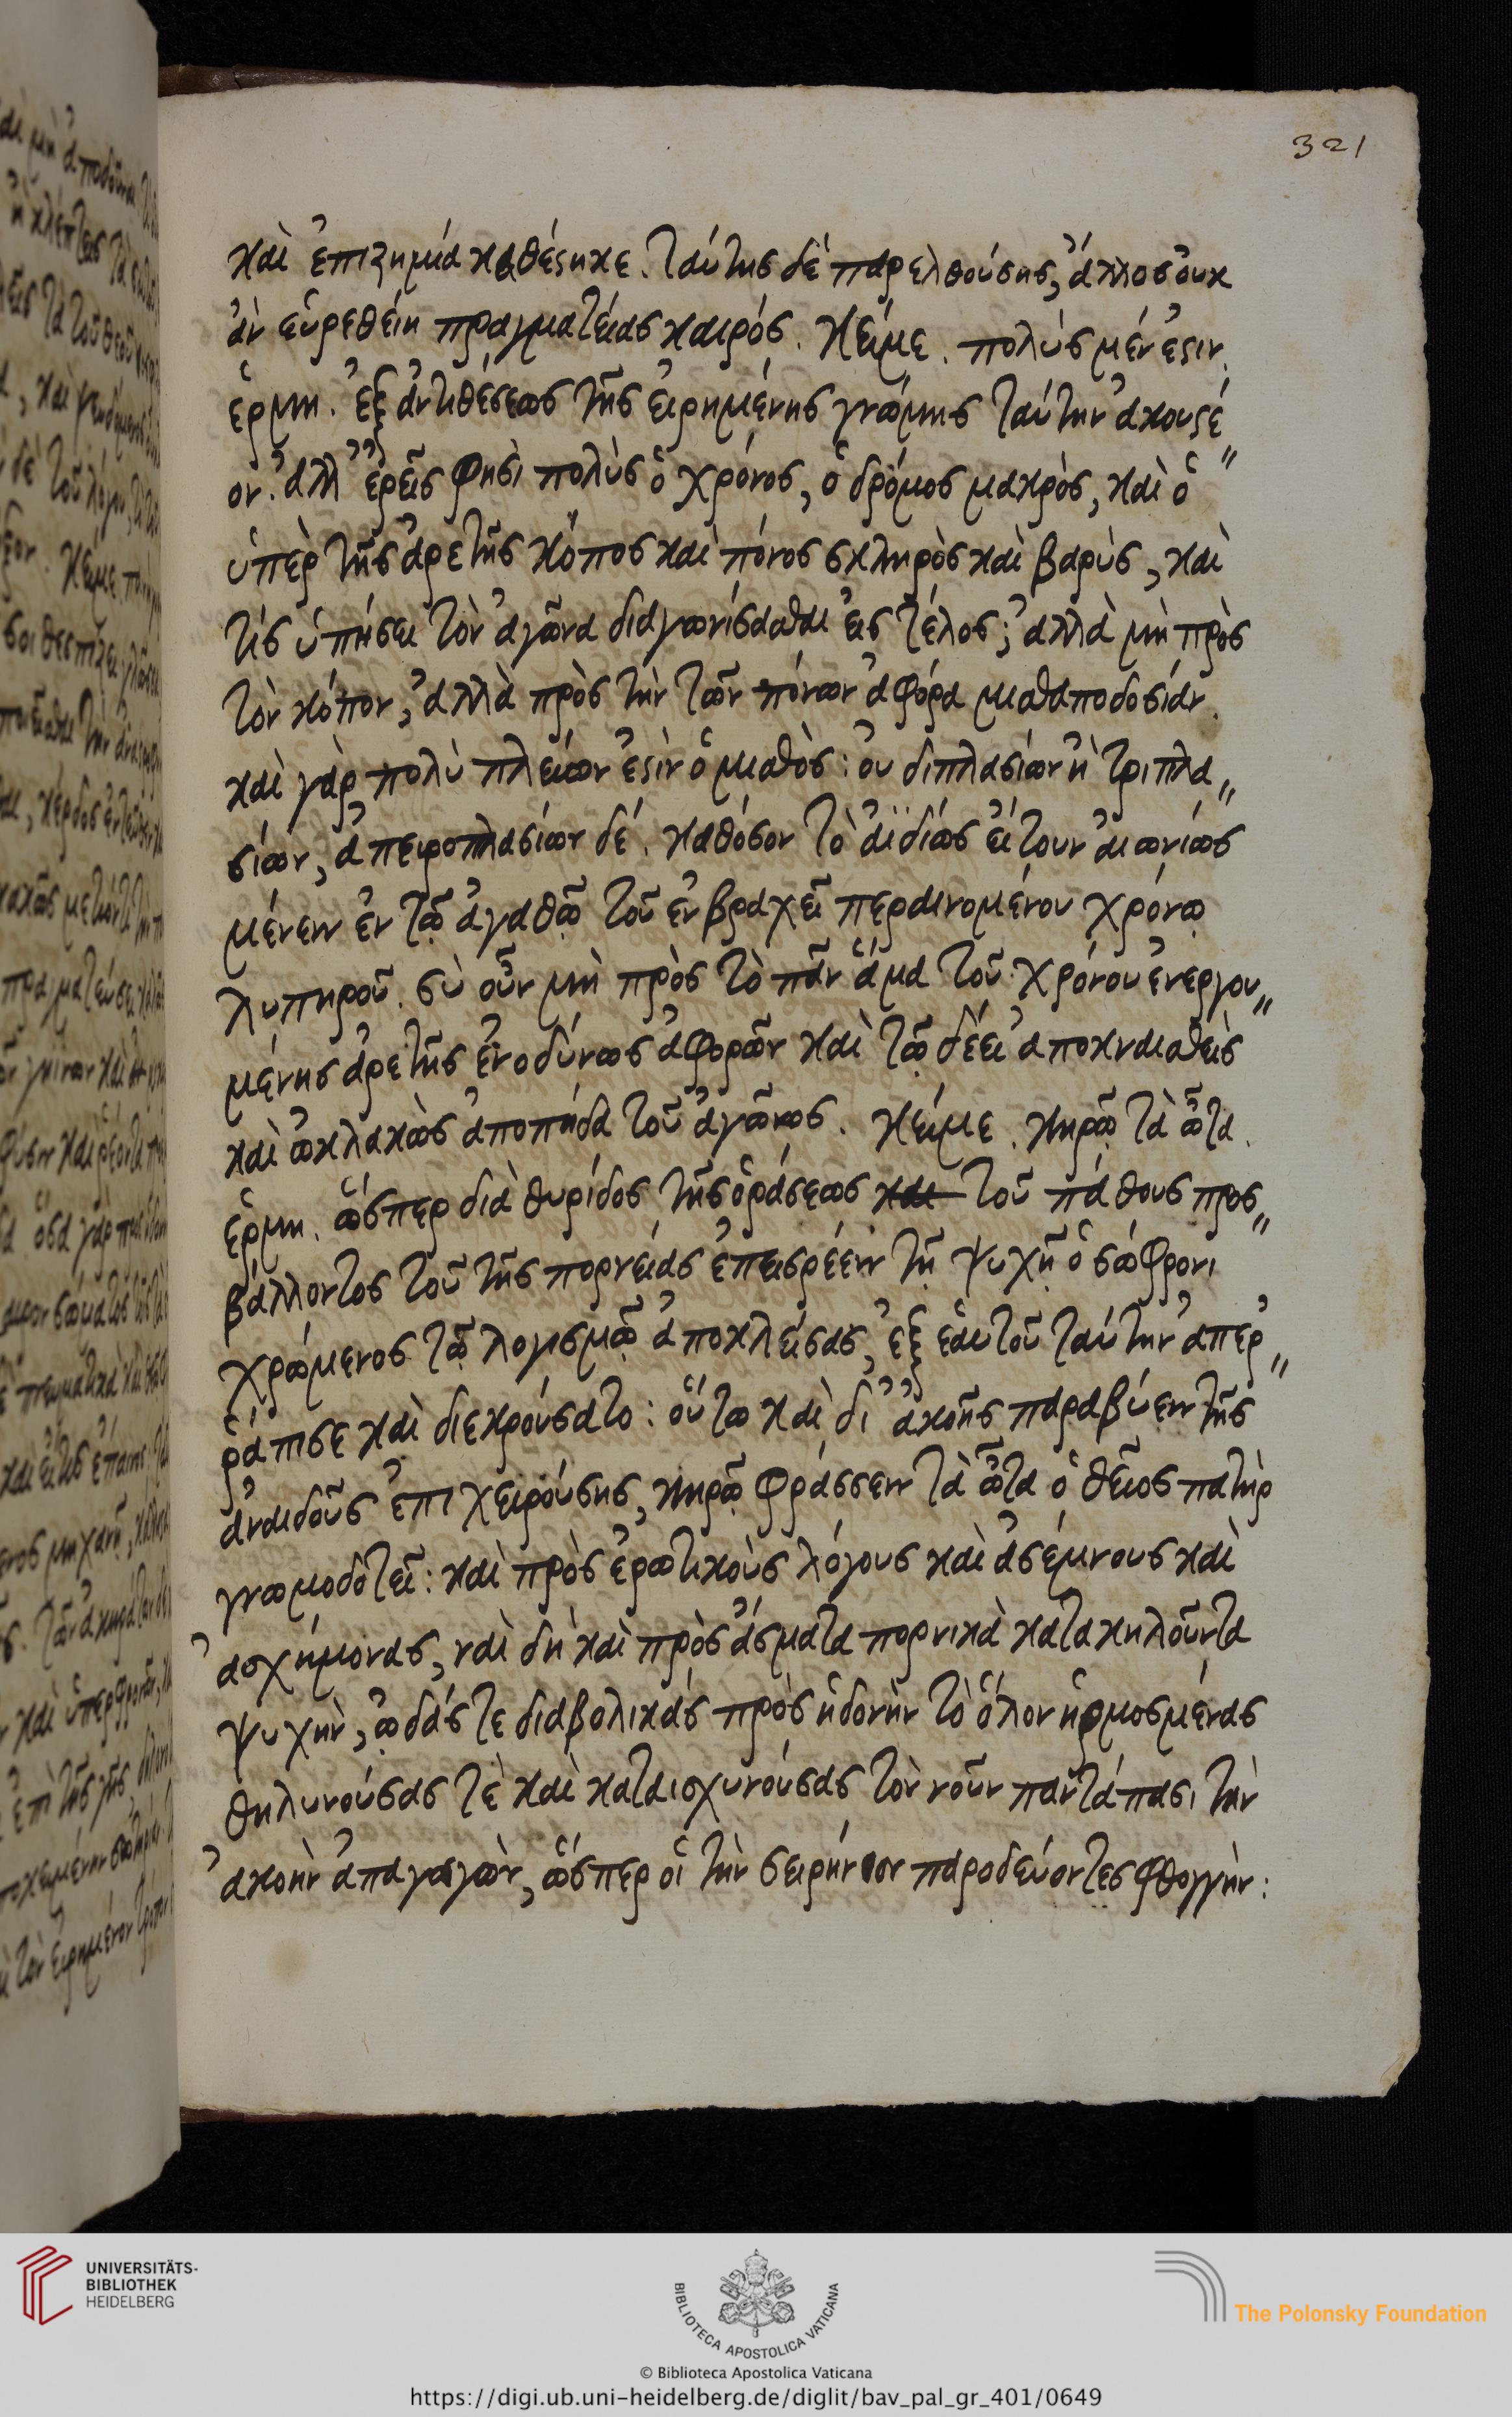 321
καὶ ἐπιζημία καθέστηκε. ταύτης δὲ παρελθούσης, ἄλλος οὐκ
ἂν εὑρεθείη πραγματείας καιρός. Κείμε. πολὺς μέν ἐστιν.
ἑρμη. ἐξ ἀντιθέσεως τῆς εἰρημένης γνώμης ταύτην ἀκουστέ〃
ον. ἀλλ' ἐρεῖς φησὶ πολὺς ὁ χρόνος, ὁ δρόμος μακρὸς, καὶ ὁ
ὑπὲρ τῆς ἀρετῆς κόπος καὶ πόνος σκληρὸς καὶ βαρὺς, καὶ
τίς ὑπήσει τὸν ἀγῶνα διαγωνίσασθαι εἰς τέλος; ἀλλὰ μὴ πρὸς
τὸν κόπον, ἀλλὰ πρὸς τὴν τῶν πόνων ἀφόρα μισθαποδοσίαν.
καὶ γὰρ πολὺ πλείων ἐστὶν ὁ μισθὸς: οὐ διπλασίων ἢ τριπλα〃
σίων, ἀπειροπλασίων δέ. καθόσον τὸ ἀϊδίως εἴτουν αἰωνίως
μένειν ἐν τῷ ἀγαθῷ τοῦ ἐν βραχεῖ περαινομένου χρόνῳ
λυπηροῦ. σὺ οὖν μὴ πρὸς τὸ πᾶν ἅμα τοῦ χρόνου ἐνεργου〃
μένης ἀρετῆς ἐνοδύνως ἀφορῶν καὶ τῷ δέει ἀποκναισθεὶς
καὶ ὀκλακὼς ἀποπήδα τοῦ ἀγῶνος. Κείμε. κηρῷ τὰ ὦτα.
ἑρμη. ὥσπερ διὰ θυρίδος τῆς ὁράσεως και τοῦ πάθους προσ〃
βάλλοντος τοῦ τῆς πορνείας ἐπεισρέειν τῇ ψυχῇ ὁ σώφρονι
χρώμενος τῷ λογισμῷ ἀποκλείσας, ἐξ ἑαυτοῦ ταύτην ἀπερ〃
ῥάπισε καὶ διεκρούσατο: οὕτω καὶ δι' ἀκοῆς παραβύειν τῆς
ἀναιδοῦς ἐπιχειρούσης, κηρῷ φράσσειν τὰ ὦτα ὁ θεῖος πατὴρ
γνωμοδοτεῖ: καὶ πρὸς ἐρωτικοὺς λόγους καὶ ἀσέμνους καὶ
ἀσχήμονας, ναὶ δὴ καὶ πρὸς ἄσματα πορνικὰ κατακηλοῦντα
ψυχὴν, ᾠδάς τε διαβολικάς πρὸς ἡδονὴν τὸ ὅλον ἡρμοσμένας
θηλυνούσας τὲ καὶ καταισχυνούσας τὸν νοῦν παντάπασι τὴν
ἀκοὴν ἀπαγαγὼν, ὥσπερ οἱ τὴν σειρήνιον παροδεύοντες φθογγὴν:
UNIVERSITÄTS-
BIBLIOTHEK
HEIDELBERG
BIBLIOTECA APOSTOLICA VATICANA
© Biblioteca Apostolica Vaticana
The Polonsky Foundation
https://digi.ub.uni-heidelberg.de/diglit/bav_pal_gr_401/0649